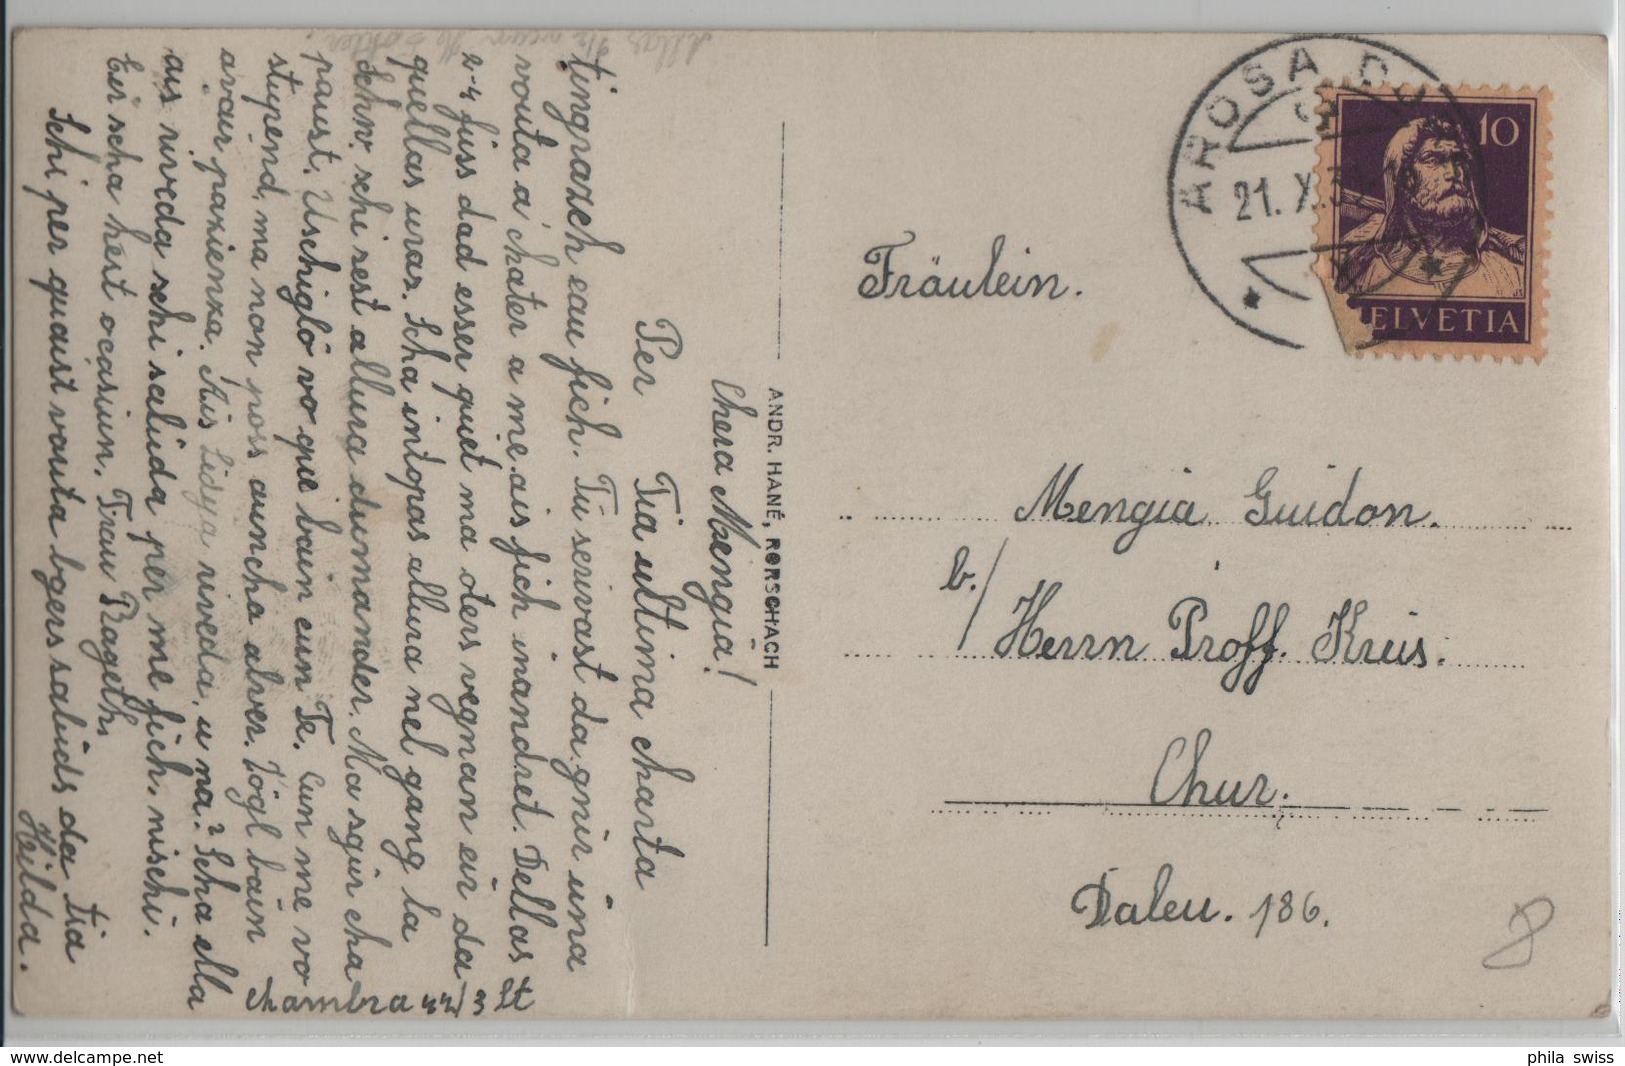 Chera Mengia!
Per Tia ultima charta
tingrazch eau fich. Tü scrivast da gnir üna
vouta a chater a me. ais fich inandret. Dellas
2-4 füss dad esser quet ma oters vegnan eir da
quellas uras. Scha intopas allura nel gang la
Schw. schi sest allura dumander. Ma sgür cha
paust. Uschiglö vo que bain cun Te. Cun me vo
stupend, ma non poss auncha alver. Vögl bain
avair pazienza. Ais Lidya riveda, u na? Scha ella
ais riveda schi salüda per me fich, nischi.
Eir scha hest ocasiun, Frau Prageth.
Schi per quaist vouta bgers salüds da tia
Hilda.
Chambra 42/3 St
ANDR. HANÉ, RORSCHACH
AROSA
21. X. 3
10
HELVETIA
Fräulein.
Mengia Guidon.
b./ Herrn Proff. Kreis.
Chur.
Daleu. 186.
8
www.delcampe.net
phila_swiss